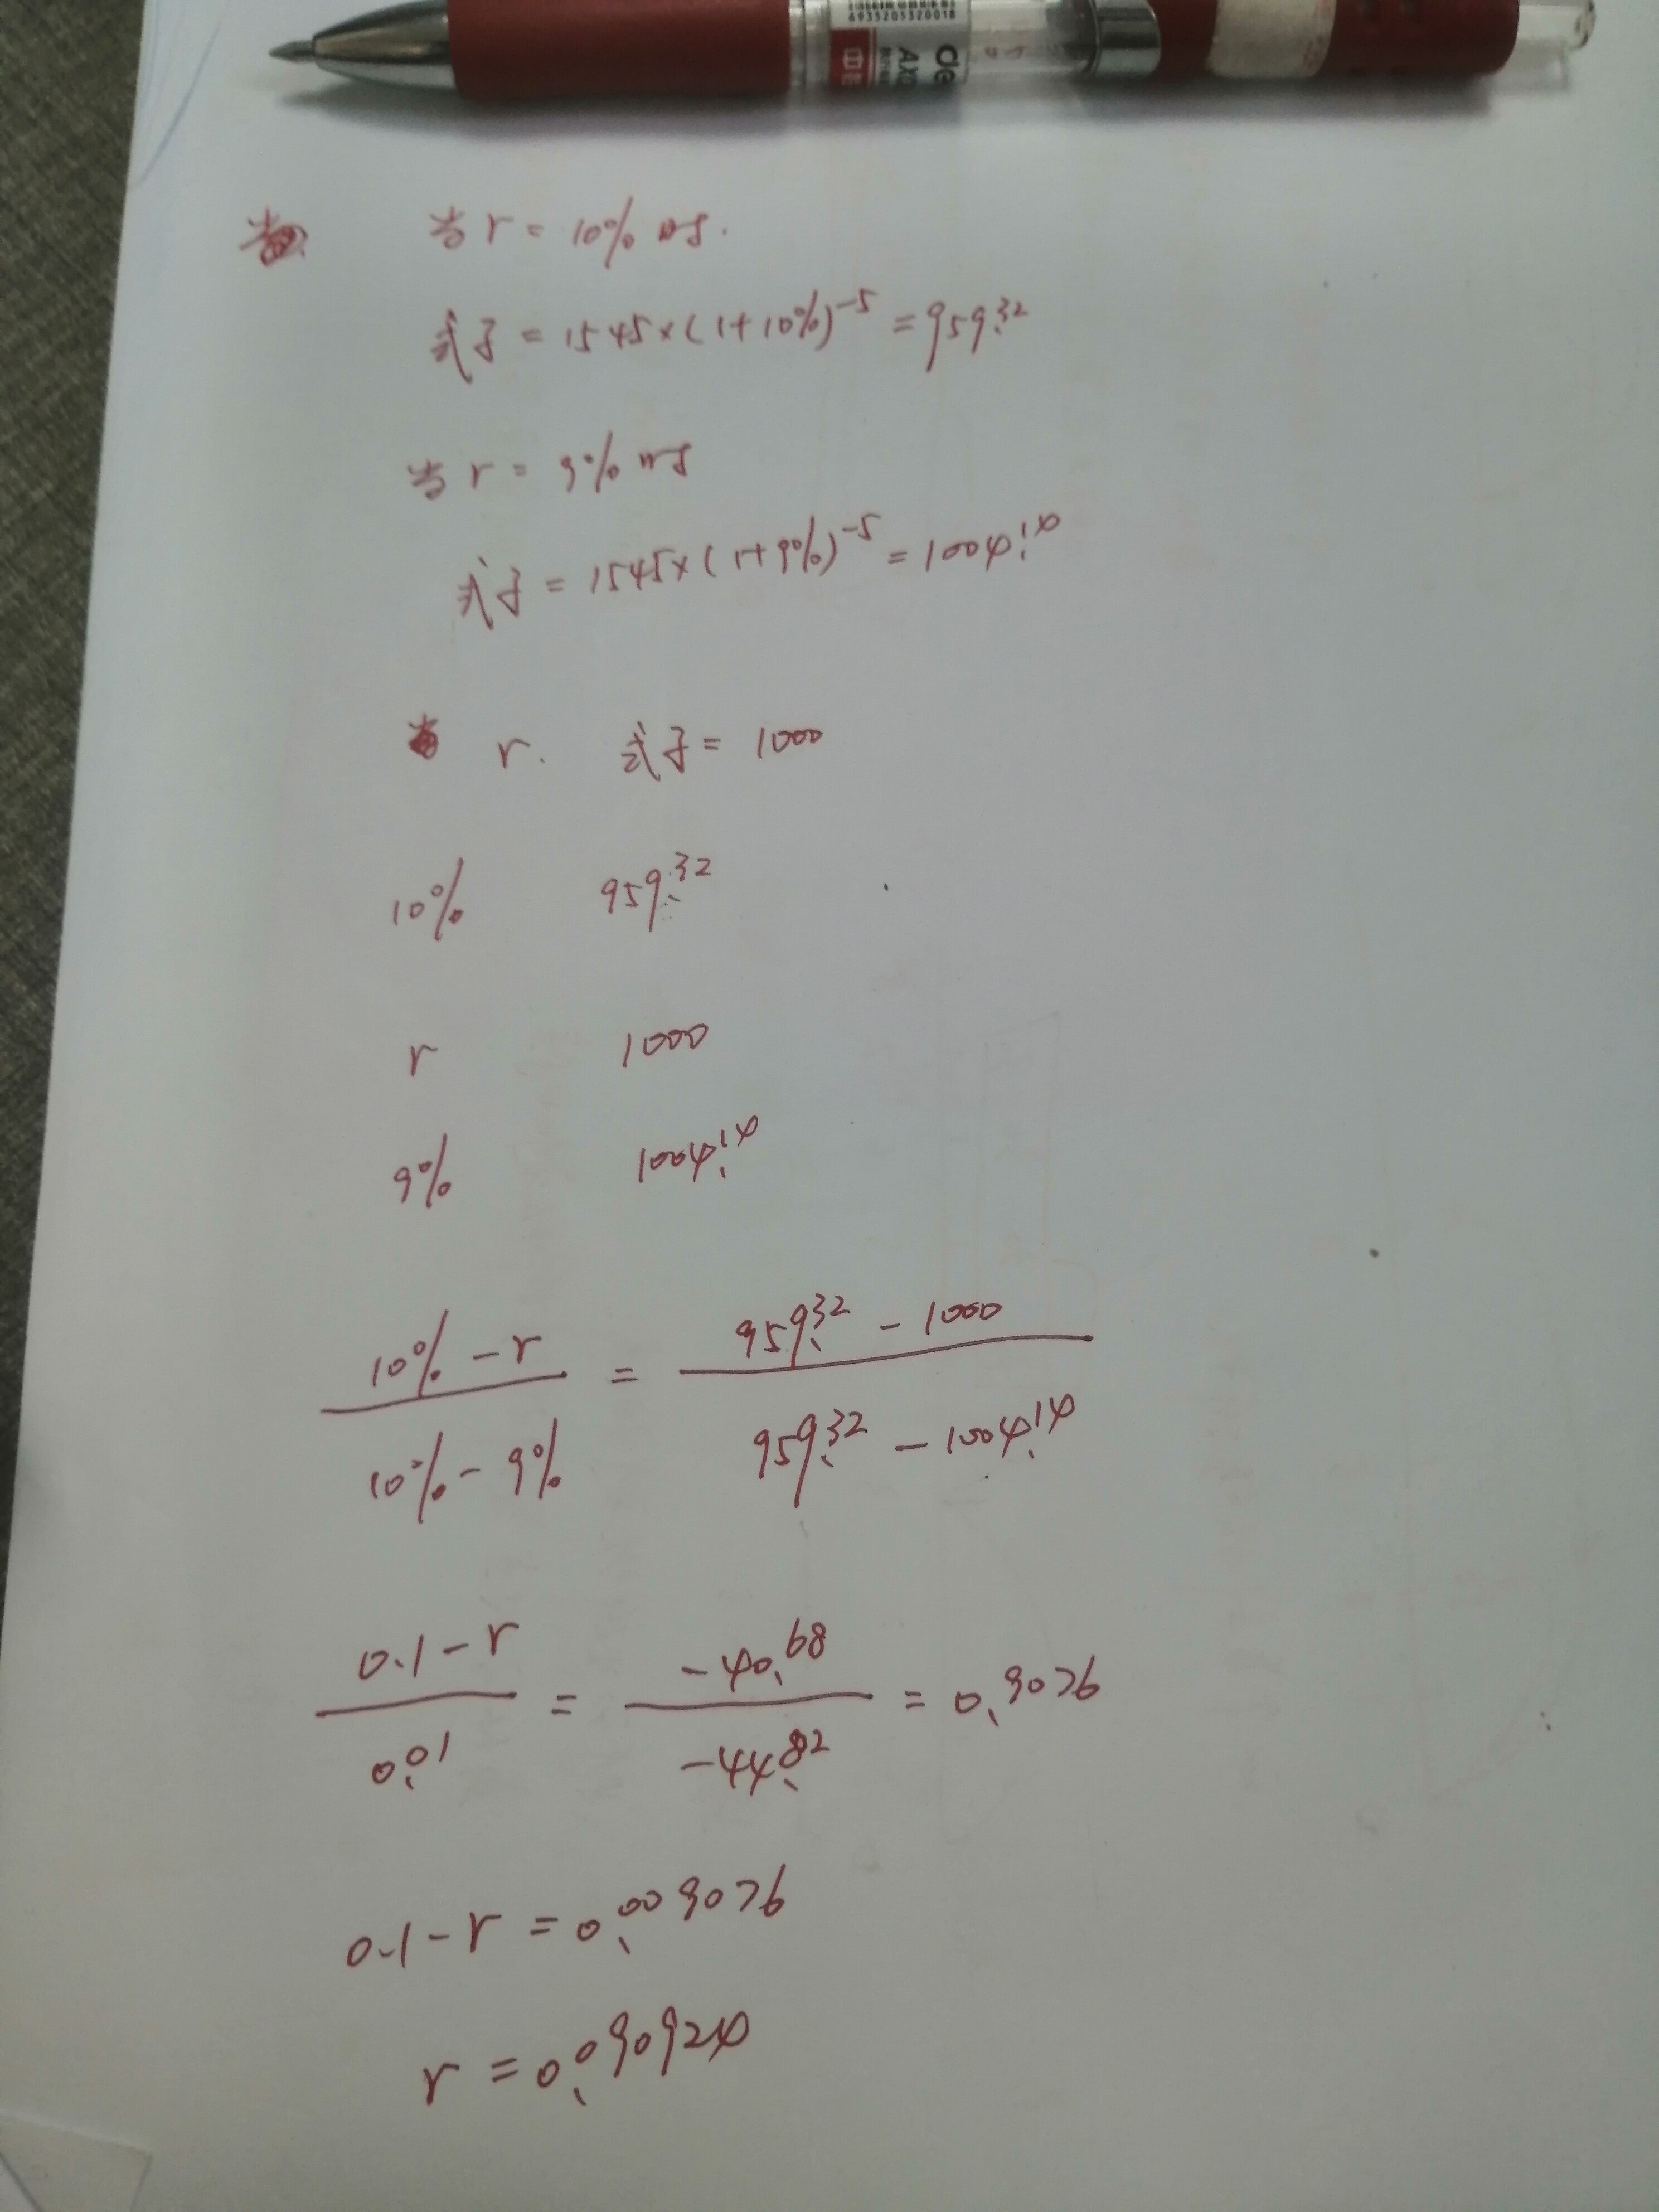 6935205320018
de
AXO
当r = 10% 时.
式子 = 1545×(1+10%)⁻⁵ = 959.32
当 r = 9% 时
式子 = 1545×(1+9%)⁻⁵ = 1004.14
r. 式子 = 1000
10% 959.32
r 1000
9% 1004.14
10% - r = 959.32 - 1000
10% - 9% 959.32 - 1004.14
0.1 - r = -40.68 = 0.9076
0.01 -44.82
0.1 - r = 0.009076
r = 0.090924